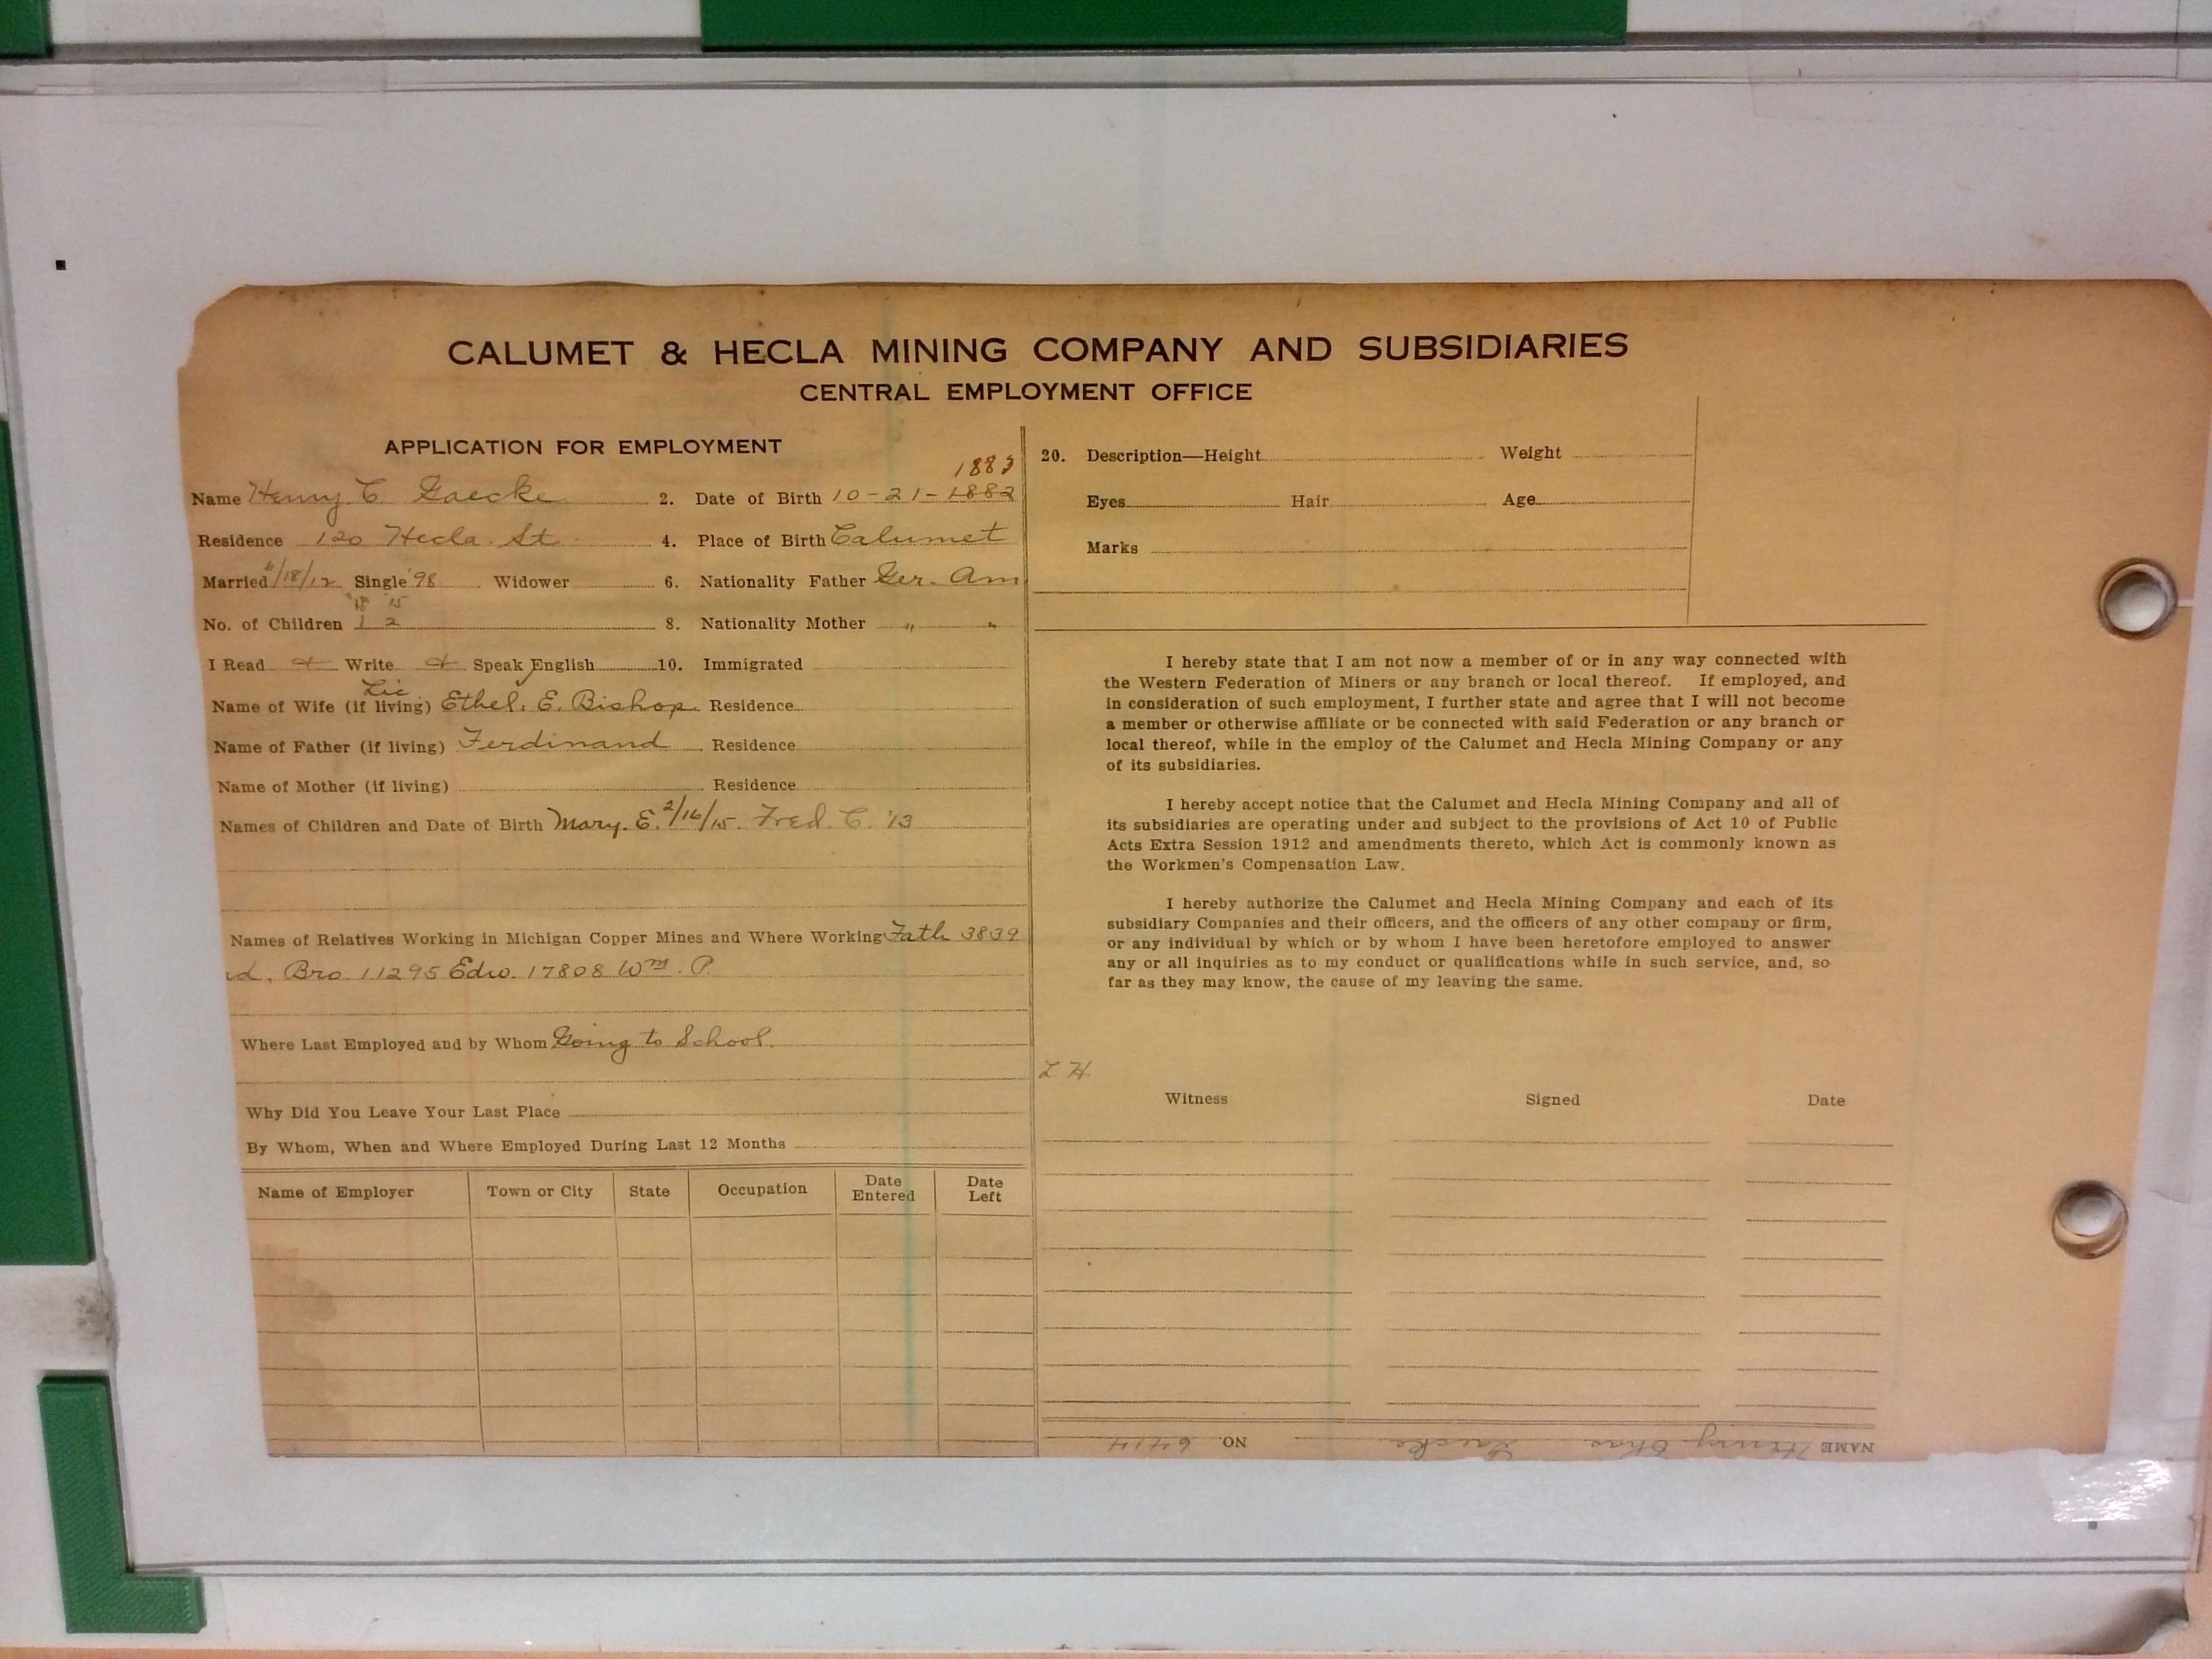 CALUMET & HECLA MINING COMPANY AND SUBSIDIARIES
CENTRAL EMPLOYMENT OFFICE
APPLICATION FOR EMPLOYMENT
1883
Name Henry C. Gaecke 2. Date of Birth 10-21-1882
Residence 120 Hecla St. 4. Place of Birth Calumet
Married 6/18/12 Single '98 Widower 6. Nationality Father Ger. Am
'13 '15
No. of Children 1 2 8. Nationality Mother " "
I Read + Write + Speak English 10. Immigrated
Lic
Name of Wife (if living) Ethel. E. Bishop Residence
Name of Father (if living) Ferdinand Residence
Name of Mother (if living) Residence
Names of Children and Date of Birth Mary. E. 2/16/15. Fred. C. '13
Names of Relatives Working in Michigan Copper Mines and Where Working Fath 3839
d. Bro 11295 Edw. 17808 Wm. P.
Where Last Employed and by Whom Going to School.
Why Did You Leave Your Last Place
By Whom, When and Where Employed During Last 12 Months
Name of Employer Town or City State Occupation Date Entered Date Left
20. Description—Height Weight
Eyes Hair Age
Marks
I hereby state that I am not now a member of or in any way connected with
the Western Federation of Miners or any branch or local thereof. If employed, and
in consideration of such employment, I further state and agree that I will not become
a member or otherwise affiliate or be connected with said Federation or any branch or
local thereof, while in the employ of the Calumet and Hecla Mining Company or any
of its subsidiaries.
I hereby accept notice that the Calumet and Hecla Mining Company and all of
its subsidiaries are operating under and subject to the provisions of Act 10 of Public
Acts Extra Session 1912 and amendments thereto, which Act is commonly known as
the Workmen's Compensation Law.
I hereby authorize the Calumet and Hecla Mining Company and each of its
subsidiary Companies and their officers, and the officers of any other company or firm,
or any individual by which or by whom I have been heretofore employed to answer
any or all inquiries as to my conduct or qualifications while in such service, and, so
far as they may know, the cause of my leaving the same.
L H.
Witness Signed Date
NAME Henry Chas Gaecke NO. 6414